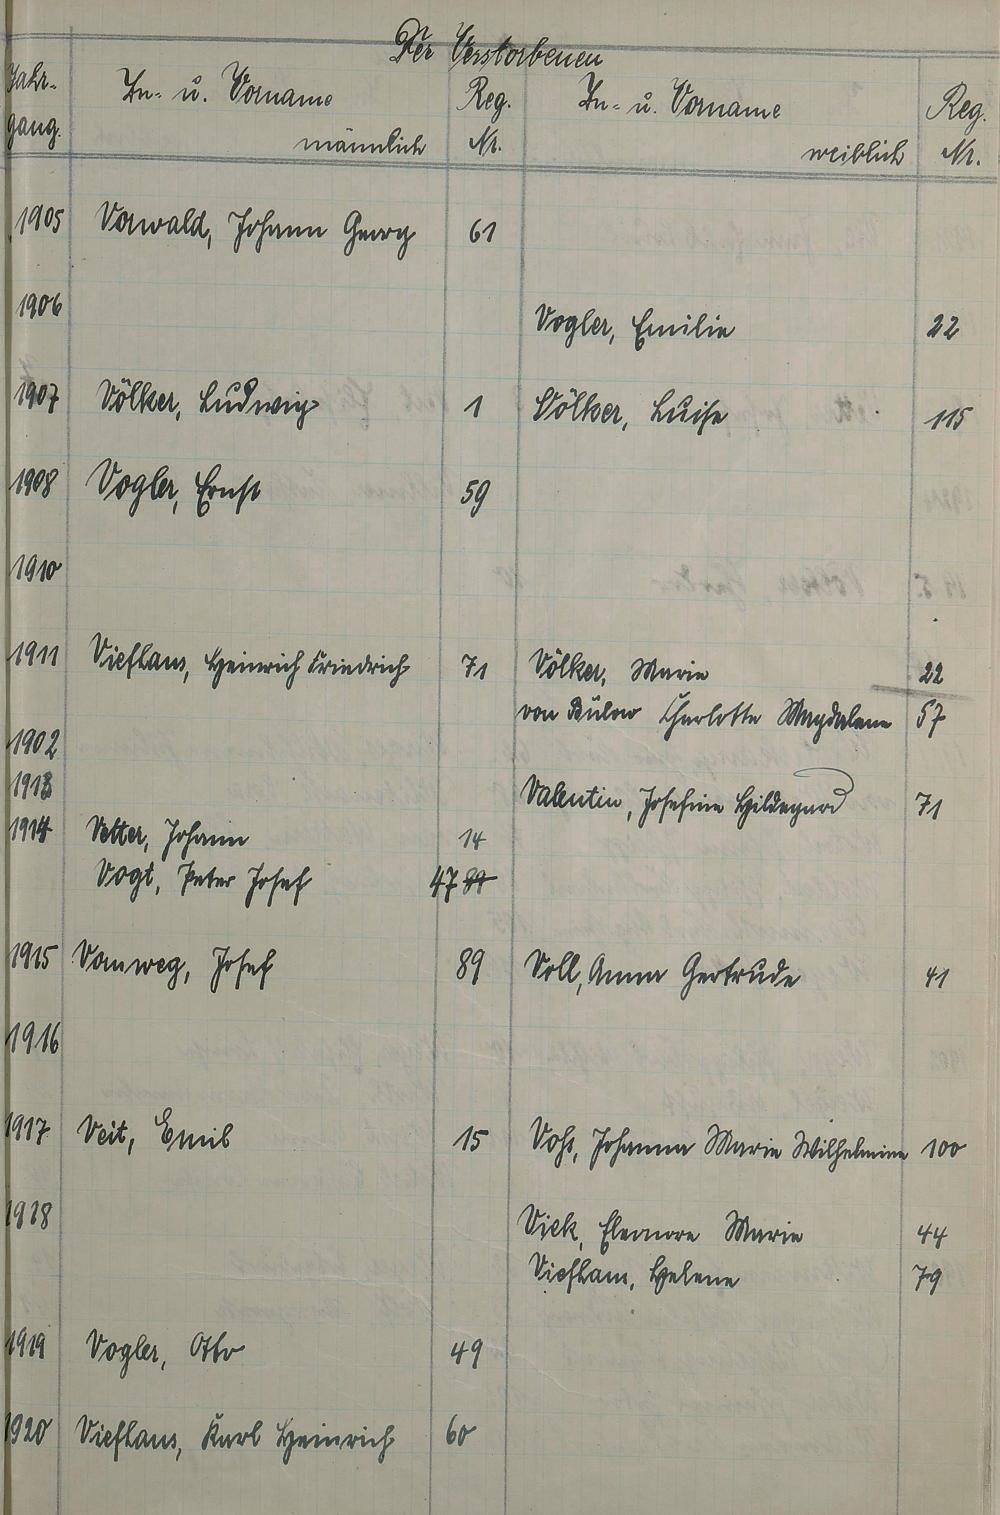 Der Verstorbenen
Jahr- Zu- u. Vorname Reg. Zu- u. Vorname Reg.
gang. männlich Nr. weiblich Nr.
1905 Vorwald, Johann Georg 61
1906 Vogler, Emilie 22
1907 Völker, Ludwig 1 Völker, Luise 115
1908 Vogler, Ernst 59
1910
1911 Viefhaus, Heinrich Friedrich 71 Völker, Marie 22
von Bülow Charlotte Magdalene 57
1902
1913 Valentin, Josefine Hildegard 71
1914 Vetter, Johann 14
Vogt, Peter Josef 47 89
1915 Vomweg, Josef 89 Voll, Anna Gertrude 41
1916
1917 Veit, Emil 15 Vohs, Johanna Marie Wilhelmine 100
1918 Vick, Eleonore Marie 44
Viefhaus, Helene 79
1919 Vogler, Otto 49
1920 Viefhaus, Karl Heinrich 60